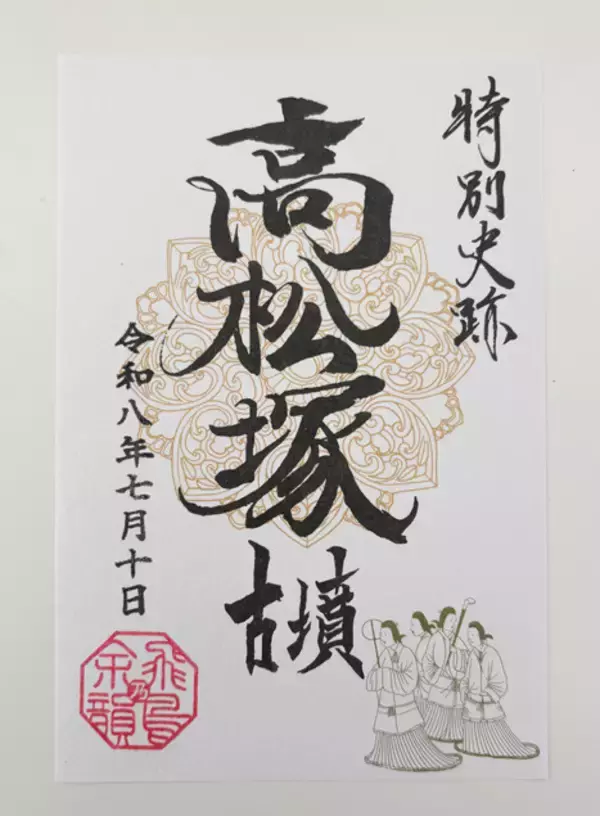 特別史跡
高松塚
古墳
令和八年七月十日
飛鳥
乃
余韻